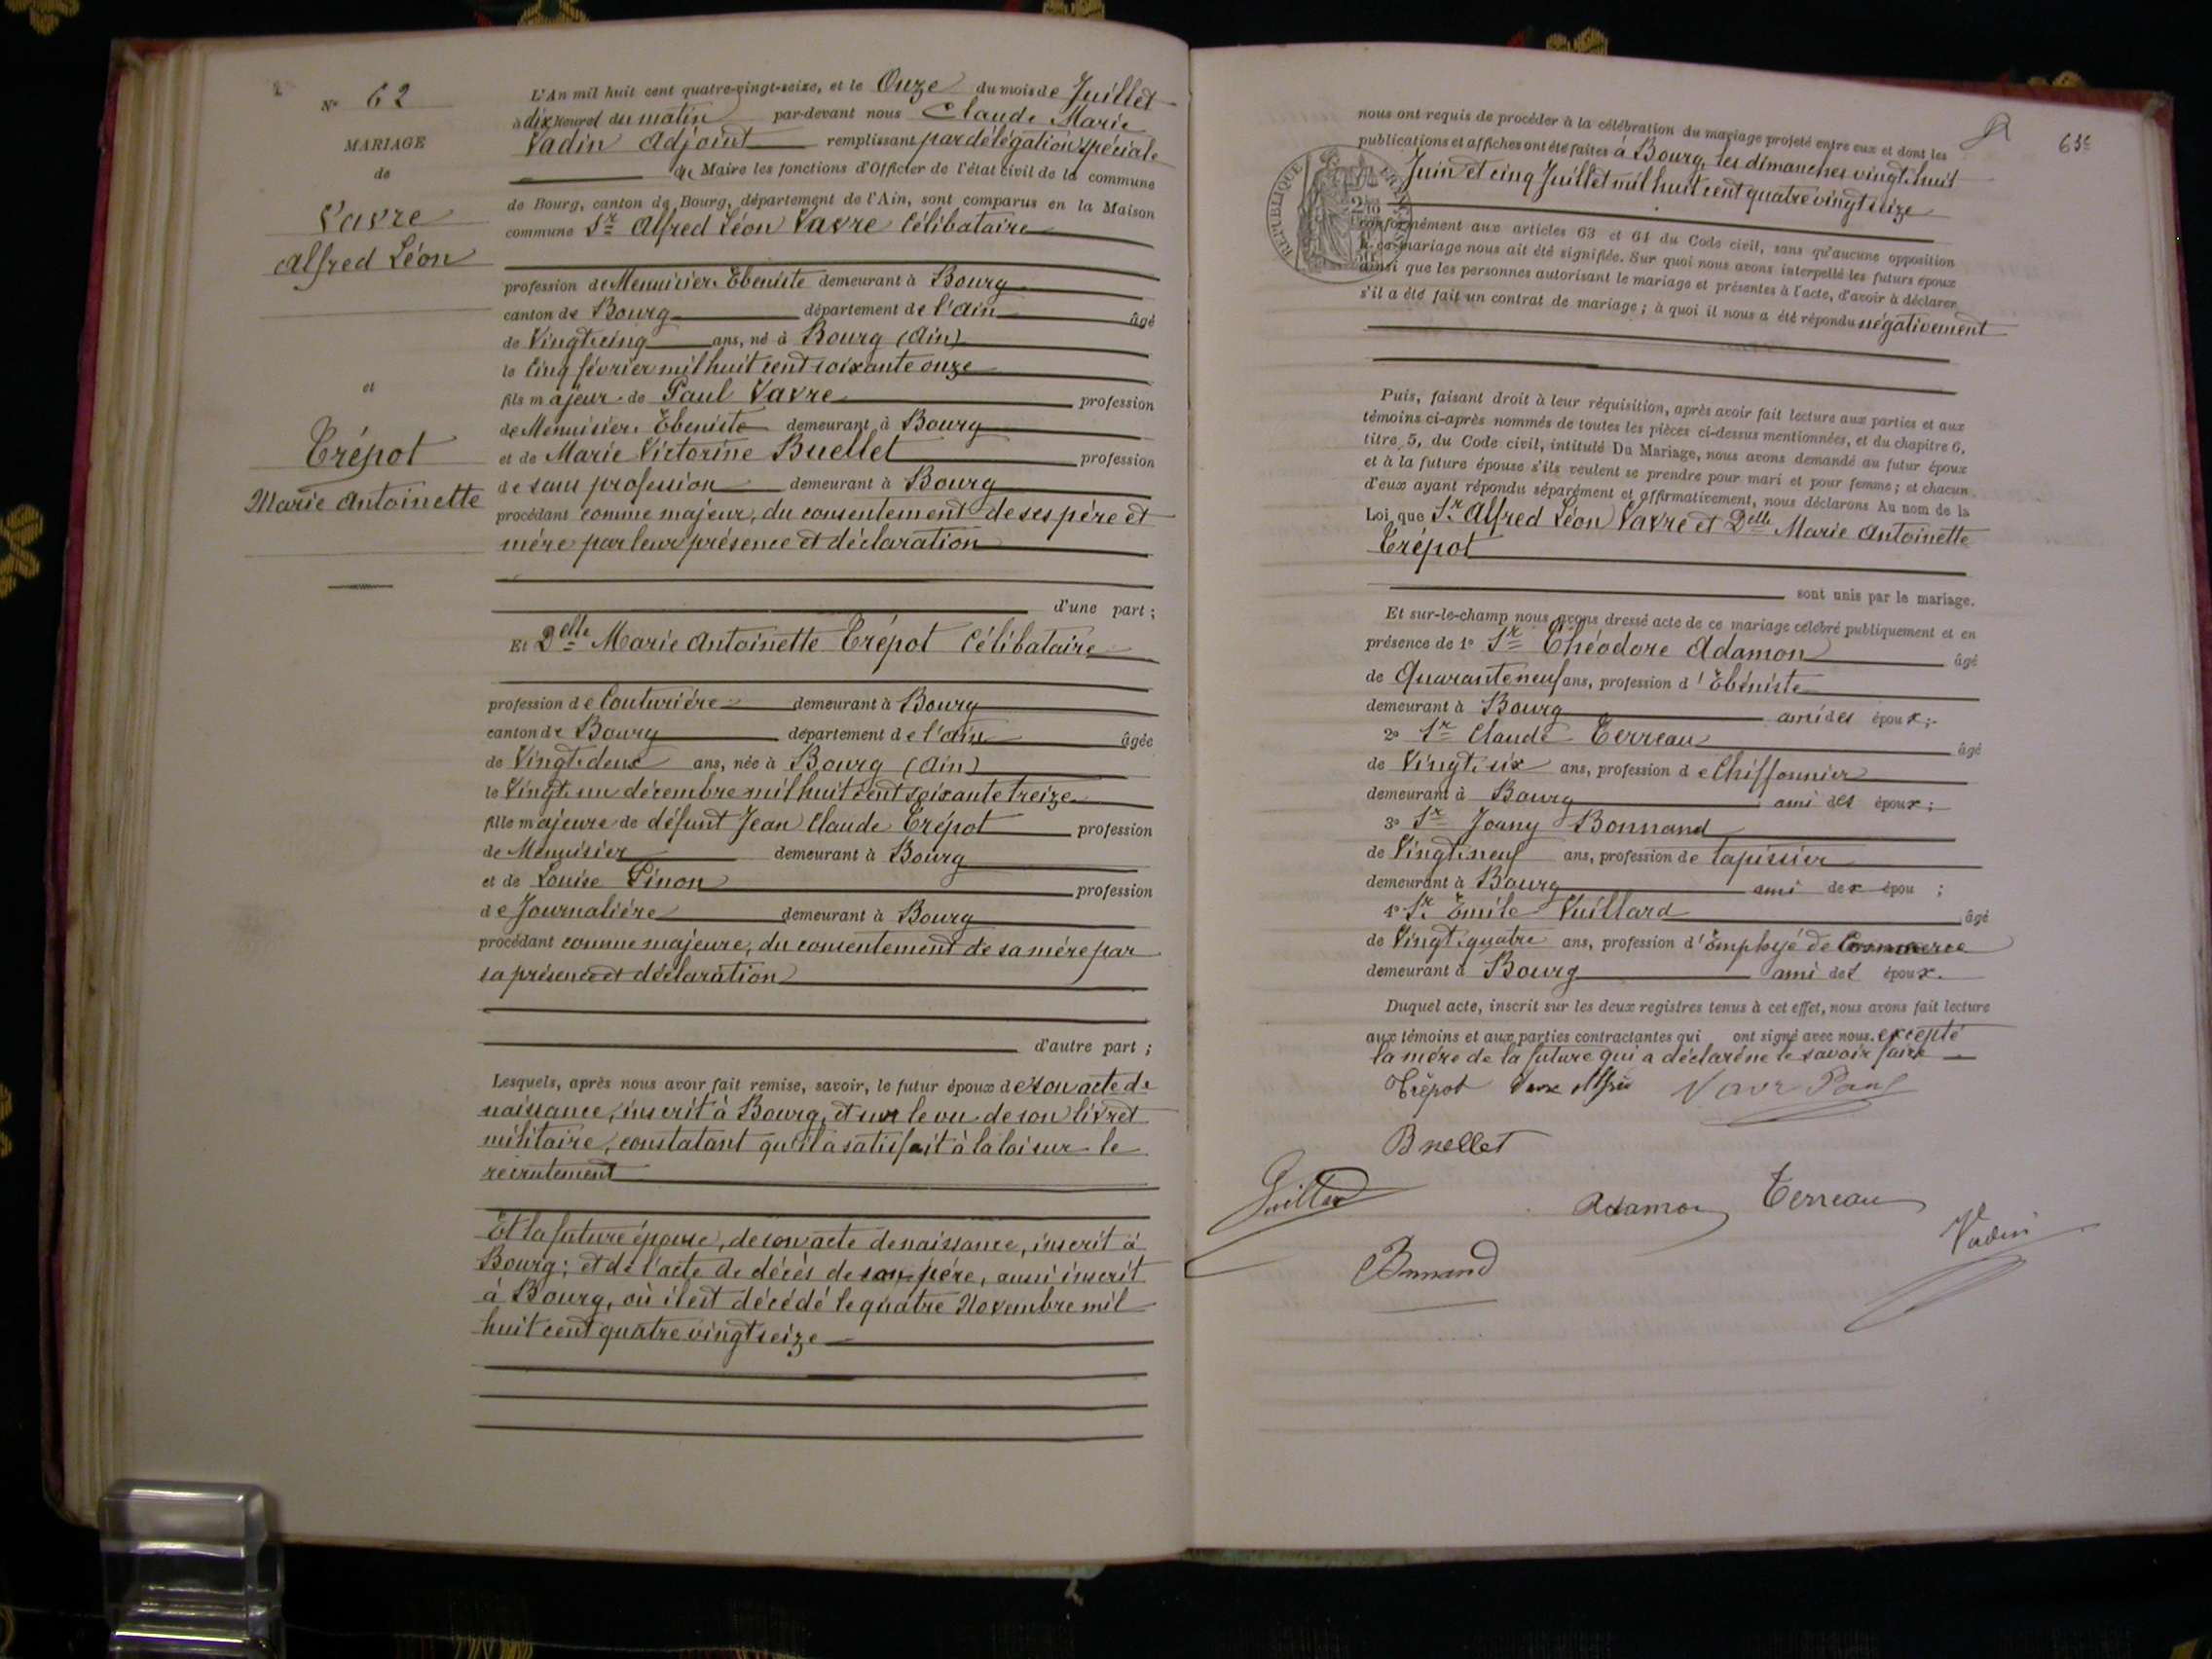 N° 62
MARIAGE
de
Vavre
Alfred Léon
et
Trépot
Marie Antoinette
L'An mil huit cent quatre-vingt-seize, et le Onze du mois de Juillet
à dix heures du matin par-devant nous Claude Marie
Vadin Adjoint remplissant par délégation spéciale
du Maire les fonctions d'Officier de l'état civil de la commune
de Bourg, canton de Bourg, département de l'Ain, sont comparus en la Maison
commune Sr Alfred Léon Vavre Célibataire
profession de Menuisier Ebeniste demeurant à Bourg
canton de Bourg département de l'Ain âgé
de Vingt cinq ans, né à Bourg (Ain)
le Cinq février mil huit cent soixante onze
fils majeur de Paul Vavre profession
de Menuisier Ebeniste demeurant à Bourg
et de Marie Victorine Buellet profession
de sans profession demeurant à Bourg
procédant comme majeur, du consentement de ses père et
mère par leur présence et déclaration
d'une part ;
Et Delle Marie Antoinette Trépot Célibataire
profession de Couturière demeurant à Bourg
canton de Bourg département de l'Ain âgée
de Vingt deux ans, née à Bourg (Ain)
le Vingt un décembre mil huit cent soixante treize
fille majeure de défunt Jean Claude Trépot profession
de Menuisier demeurant à Bourg
et de Louise Pinon profession
de Journalière demeurant à Bourg
procédant comme majeure, du consentement de sa mère par
sa présence et déclaration
d'autre part ;
Lesquels, après nous avoir fait remise, savoir, le futur époux de son acte de
naissance, inscrit à Bourg, et sur le vu de son livret
militaire, constatant qu'il a satisfait à la loi sur le
recrutement
Et la future épouse, de son acte de naissance, inscrit à
Bourg ; et de l'acte de décès de son père, aussi inscrit
à Bourg, où il est décédé le quatre Novembre mil
huit cent quatre vingt seize
63e
nous ont requis de procéder à la célébration du mariage projeté entre eux et dont les
publications et affiches ont été faites à Bourg, les dimanches vingt huit
Juin et cinq Juillet mil huit cent quatre vingt seize
conformément aux articles 63 et 64 du Code civil, sans qu'aucune opposition
à ce mariage nous ait été signifiée. Sur quoi nous avons interpellé les futurs époux
ainsi que les personnes autorisant le mariage et présentes à l'acte, d'avoir à déclarer
s'il a été fait un contrat de mariage ; à quoi il nous a été répondu négativement
Puis, faisant droit à leur réquisition, après avoir fait lecture aux parties et aux
témoins ci-après nommés de toutes les pièces ci-dessus mentionnées, et du chapitre 6,
titre 5, du Code civil, intitulé Du Mariage, nous avons demandé au futur époux
et à la future épouse s'ils veulent se prendre pour mari et pour femme ; et chacun
d'eux ayant répondu séparément et affirmativement, nous déclarons Au nom de la
Loi que Sr Alfred Léon Vavre et Delle Marie Antoinette
Trépot
sont unis par le mariage.
Et sur-le-champ nous avons dressé acte de ce mariage célébré publiquement et en
présence de 1° Sr Théodore Adamon âgé
de Quarante neuf ans, profession d'Ebéniste
demeurant à Bourg ami des époux ;
2° Sr Claude Terreau âgé
de Vingt six ans, profession de Chiffonnier
demeurant à Bourg ami des époux ;
3° Sr Joany Bonnand
de Vingt neuf ans, profession de tapissier
demeurant à Bourg ami dex épou ;
4° Sr Emile Vuillard âgé
de Vingt quatre ans, profession d'Employé de Commerce
demeurant à Bourg ami des époux.
Duquel acte, inscrit sur les deux registres tenus à cet effet, nous avons fait lecture
aux témoins et aux parties contractantes qui ont signé avec nous, excepté
la mère de la future qui a déclaré ne le savoir faire
Trépot Vavre Paul
Buellet
Adamon Terreau
Vadin
Bonnand